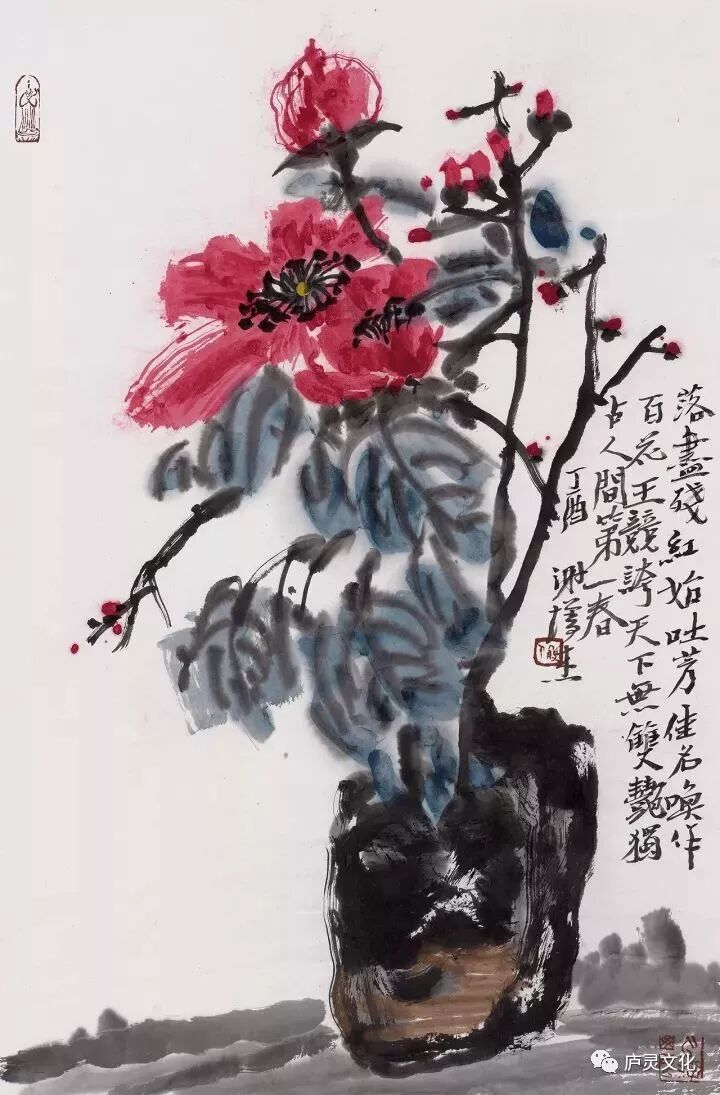 落盡殘紅始吐芳佳名喚作
百花王競誇天下無雙艷獨
占人間第一春
丁酉
庐灵文化